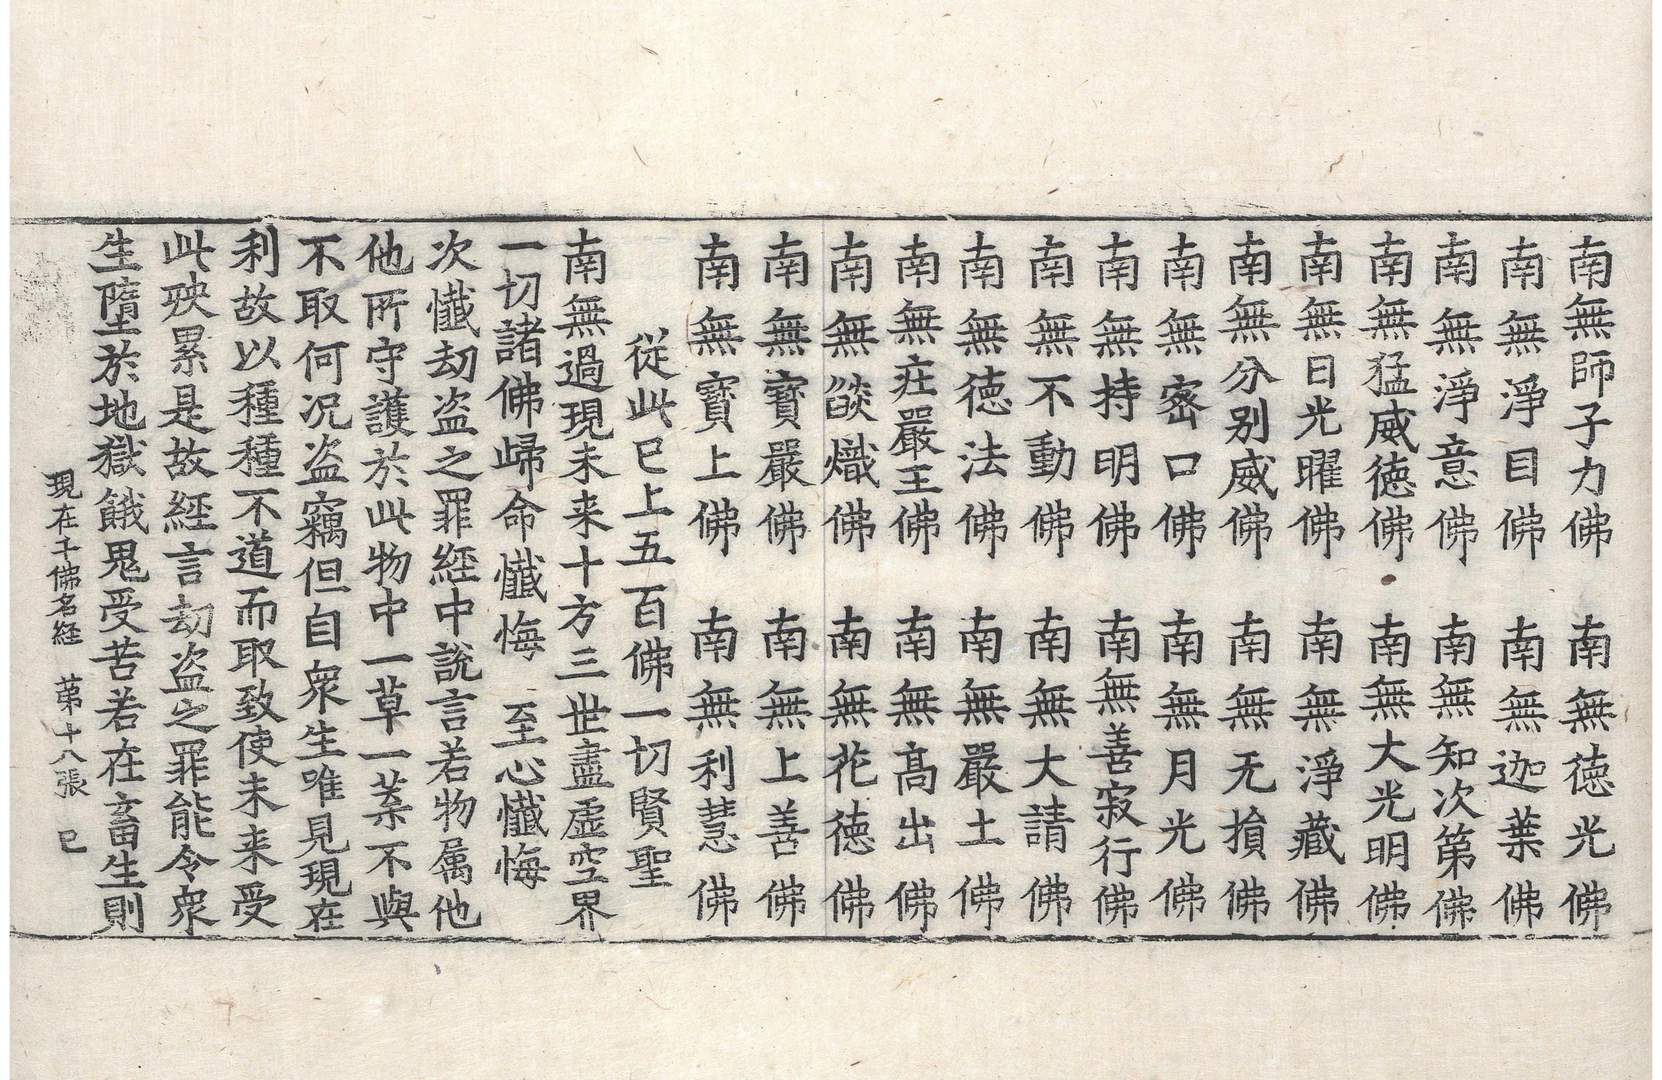 南無師子力佛　南無徳光佛
南無淨目佛　南無迦葉佛
南無淨意佛　南無知次第佛
南無猛威徳佛　南無大光明佛
南無日光曜佛　南無淨藏佛
南無分別威佛　南無无損佛
南無密口佛　南無月光佛
南無持明佛　南無善寂行佛
南無不動佛　南無大請佛
南無徳法佛　南無嚴土佛
南無庄嚴王佛　南無髙出佛
南無燄熾佛　南無花徳佛
南無寶嚴佛　南無上善佛
南無寶上佛　南無利慧佛
從此已上五百佛一切賢聖
南無過現未来十方三世盡虚空界
一切諸佛歸命懺悔　至心懺悔
次懺劫盜之罪經中說言若物属他
他所守護於此物中一草一葉不與
不取何况盜竊但自衆生唯見現在
利故以種種不道而取致使未来受
此殃累是故經言劫盜之罪能令衆
生墮於地獄餓鬼受苦若在畜生則
現在千佛名経　苐十八張　巳